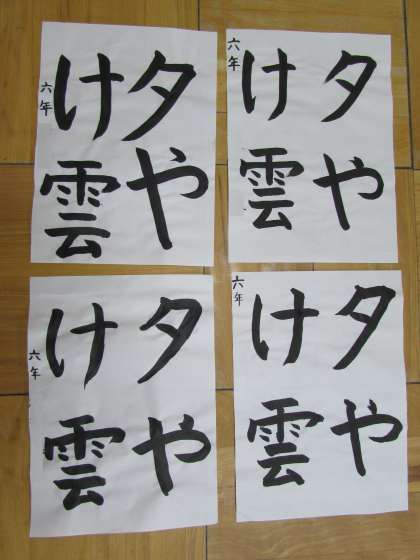 夕や
け雲
六年
夕や
け雲
六年
夕や
け雲
六年
夕や
け雲
六年